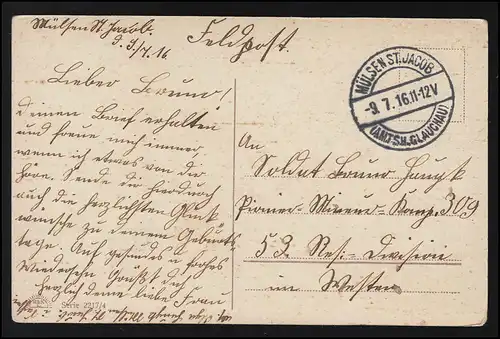 Mülsen St. Jacob.
d. 9/7. 16.
Feldpost.
Lieber Bruno!
Deinen Brief erhalten
und freue mich immer
wenn ich etwas von dir
höre. Sende dir hierdurch
auch die herzlichsten Glück
wünsche zu deinem Geburts
tage. Auf gesundes u frohes
Wiedersehn Grüßt dich
herzlich deine liebe Frau
Serie 2217/4
MÜLSEN ST. JACOB
-9.7.16.11-12V
(AMTSH. GLAUCHAU)
An
Soldat Bruno Haupt
Pionier-Mineur-Komp. 309
53. Res. Division
im Westen